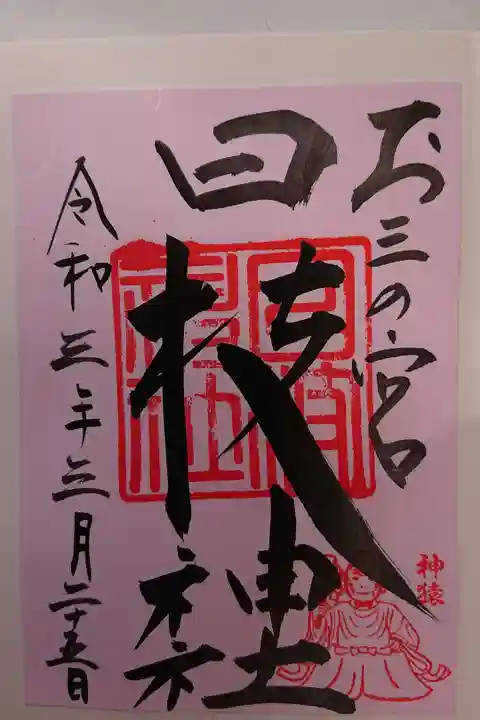 お三の宮
日枝神社
令和三年三月二十五日
神猿